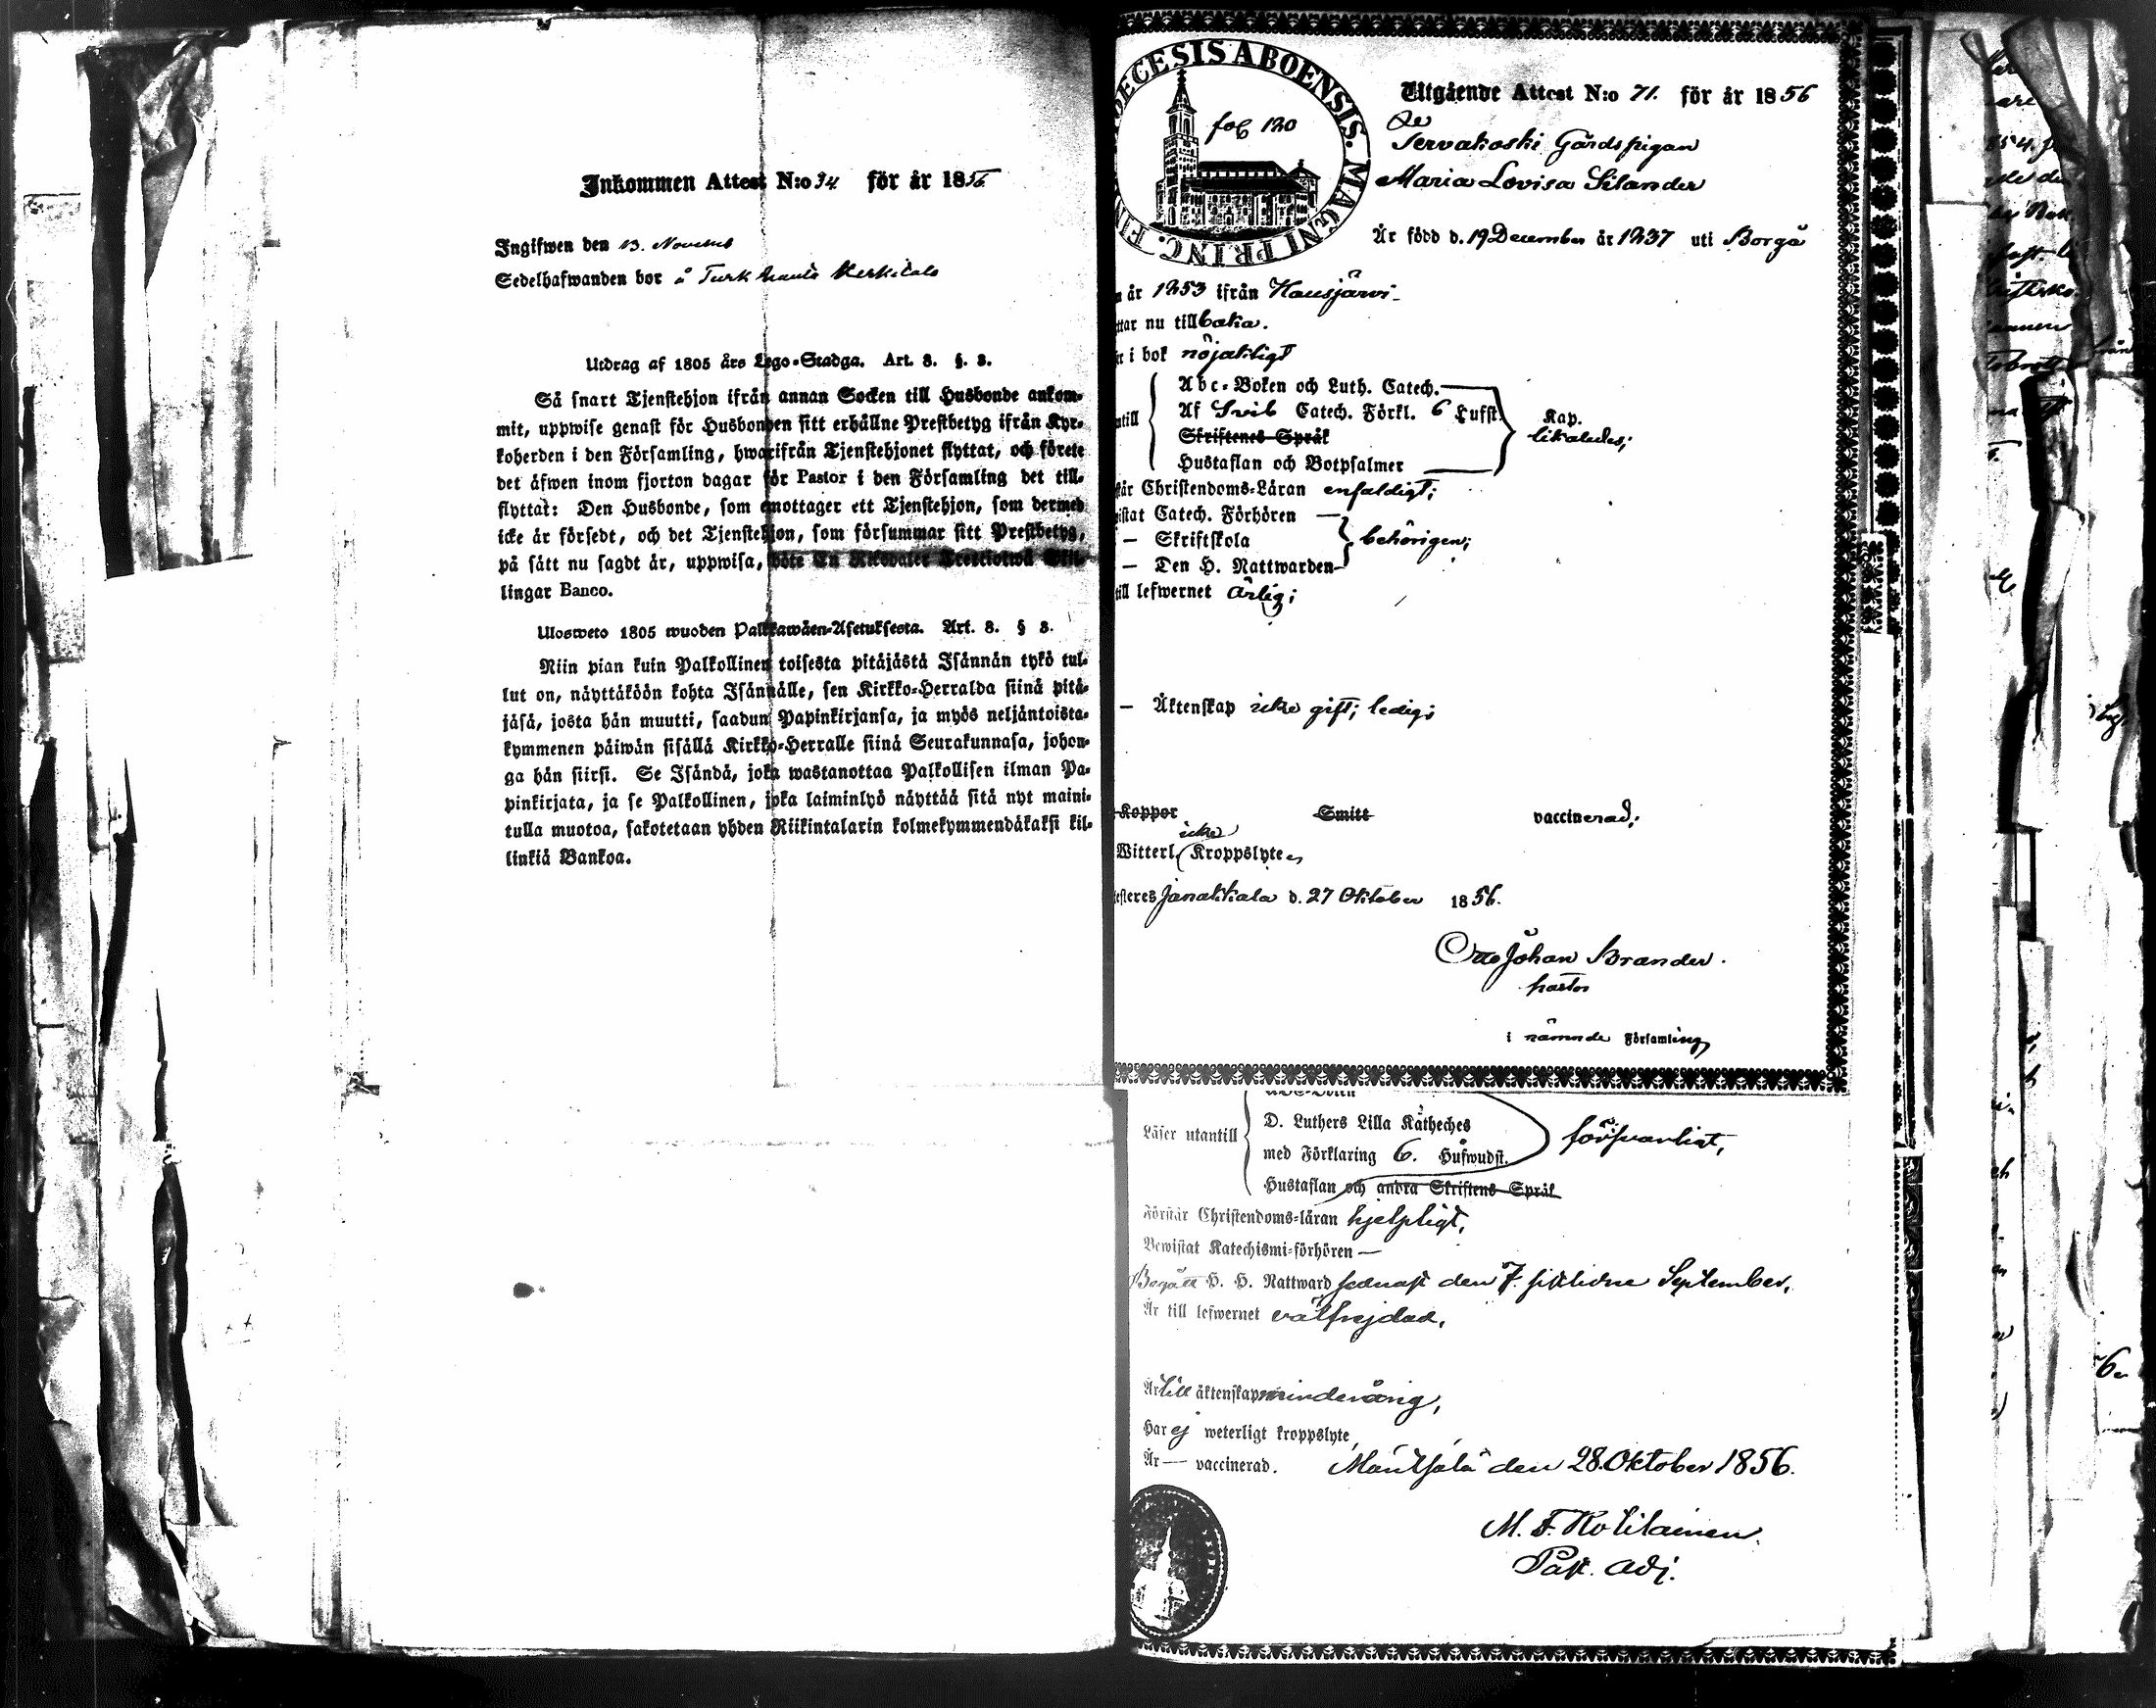 Inkommen Attest N:o 34. för år 1856.
Ingifwen den 13. Novemb
Sedelhafwanden bor å Turkhauta Kerkkala
Utdrag af 1805 års Lego-Stadga. Art. 8. §. 3.
Så snart Tjenstehjon ifrån annan Socken till Husbonde ankom-
mit, uppwise genast för Husbonden sitt erhållne Prestbetyg ifrån Kyr-
koherden i den Församling, hwarifrån Tjenstehjonet flyttat, och förete
det äfwen inom fjorton dagar för Pastor i den Församling det till-
flyttat: Den Husbonde, som emottager ett Tjenstehjon, som dermed
icke är försedt, och det Tjenstehjon, som försummar sitt Prestbetyg,
på sätt nu sagdt är, uppwisa, böte En Riksdaler Trettiotwå Skil-
lingar Banco.
Ulosweto 1805 wuoden Palkkawäen-Asetuksesta. Art. 8. § 3.
Niin pian kuin Palkollinen toisesta pitäjästä Isännän tykö tul-
lut on, näyttäköön kohta Isännälle, sen Kirkko-Herralda siinä pitä-
jäsä, josta hän muutti, saadun Papinkirjansa, ja myös neljäntoista-
kymmenen päiwän sisällä Kirkko-Herralle siinä Seurakunnasa, johon-
ga hän siirsi. Se Isändä, joka wastanottaa Palkollisen ilman Pa-
pinkirjata, ja se Palkollinen, joka laiminlyö näyttää sitä nyt maini-
tulla muotoa, sakotetaan yhden Riikintalarin kolmekymmendäkaksi kil-
linkiä Bankoa.
DIOECESIS ABOENSIS. MAGNI PRINC. FIN
fol 120
Utgående Attest N:o 71. för år 1856
Tervakoski Gårdspigan
Maria Lovisa Silander
Är född d. 19 December år 1837 uti Borgå
år 1853 ifrån Hausjärvi
ttar nu tillbaka.
i bok nöjaktligt
ntill
Abc-Boken och Luth. Catech.
Af Svib Catech. Förkl. 6 Hufst.
Skriftenes Språk
Hustaflan och Botpsalmer
Kap.
likaledes;
står Christendoms-Läran enfaldigt;
istat Catech. Förhören
— Skriftskola
— Den H. Nattwarden
behörigen;
till lefwernet ärlig;
— Äktenskap icke gift; ledig;
Koppor Smitt vaccinerad;
icke
Witterl. Kroppslyte
esteres Janakkala d. 27 Oktober 1856.
Otto Johan Brander.
pastor
i nämnde Församling
Läser utantill
D. Luthers Lilla Kätheches
med Förklaring 6. Hufwudst.
Hustaflan och andra Skriftens Språk
försvarligt,
Förstår Christendoms-läran hjelpligt,
Bewistat Katechismi-förhören —
Begått H. H. Nattward sednast den 7. sistlidne September,
Är till lefwernet välfrejdad,
Är till äktenskap minderårig,
Har ej weterligt kroppslyte,
Är — vaccinerad. Mäntsälä den 28. Oktober 1856.
M. F. Kotilainen.
Past. Adj.